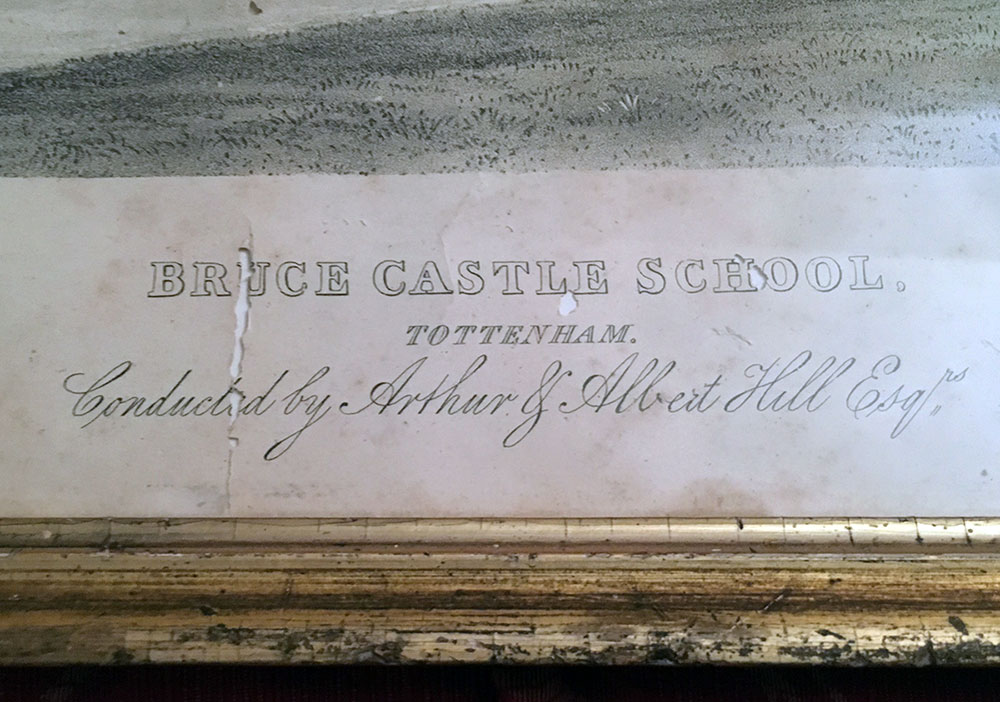 BRUCE CASTLE SCHOOL.
TOTTENHAM.
Conducted by Arthur & Albert Hill Esqrs,,